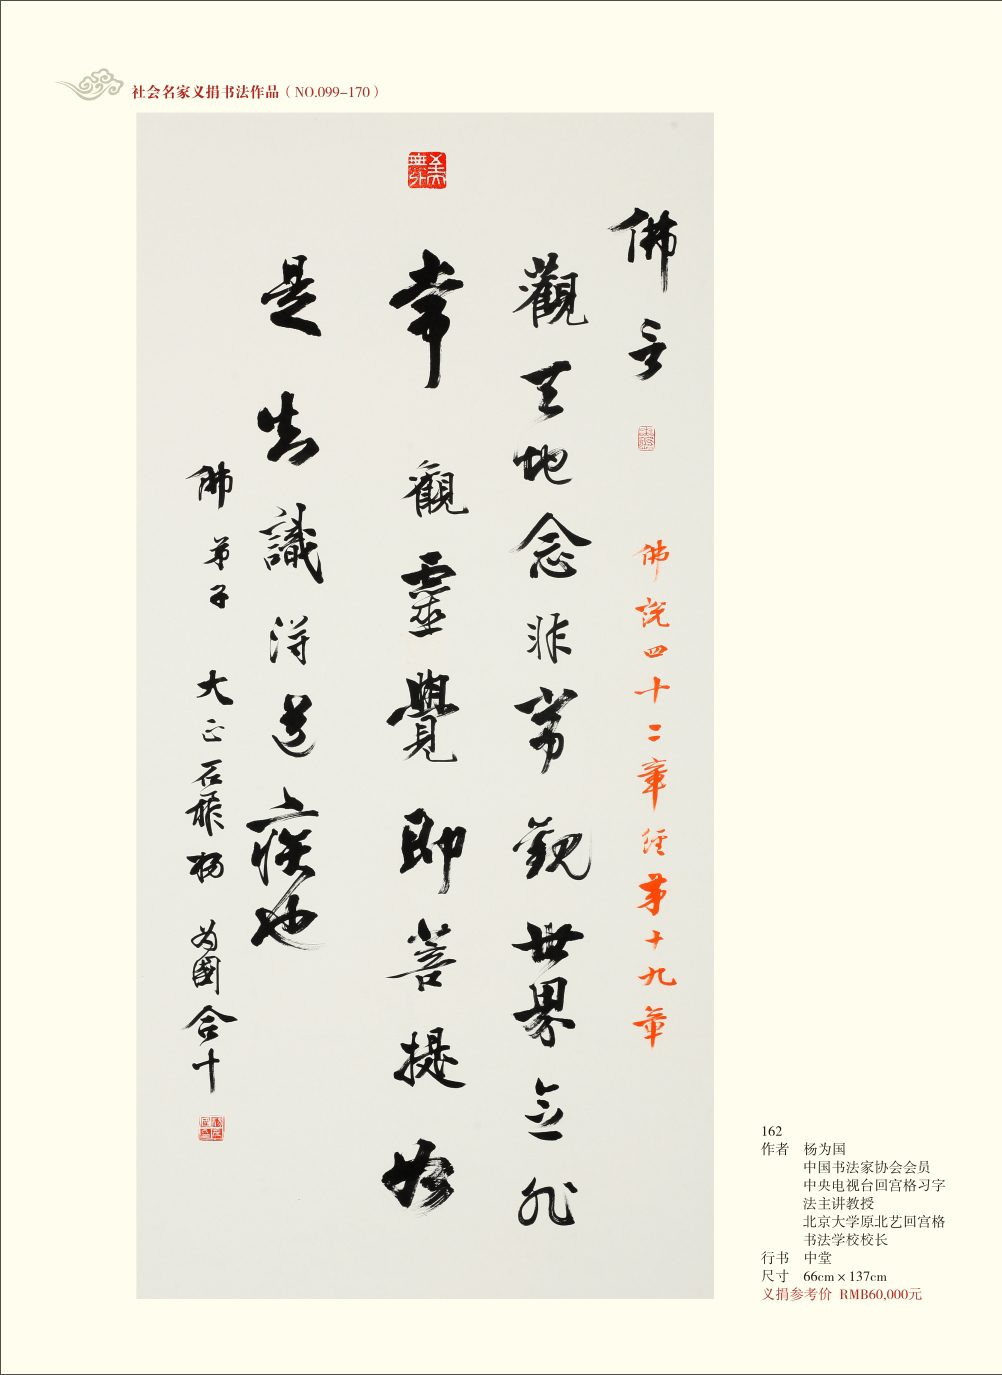 社会名家义捐书法作品（NO.099-170）
佛言
佛說四十二章經第十九章
觀天地念非常觀世界念非
常觀靈覺即菩提如
是知識得道疾也
佛弟子 大正石 杨为國合十
162
作者 杨为国
中国书法家协会会员
中央电视台回宫格习字
法主讲教授
北京大学原北艺回宫格
书法学校校长
行书 中堂
尺寸 66cm×137cm
义捐参考价 RMB60,000元